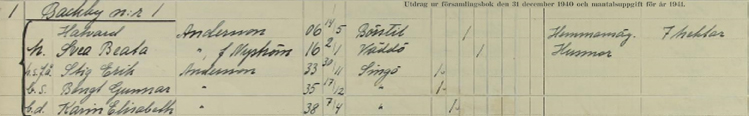 Utdrag ur församlingsbok den 31 december 1940 och mantalsuppgift för år 1941.
1 Backby n:r 1
Halvard Andersson 06 14/5 Börstil 1 Hemmansäg. 7 hektar
h. Svea Beata " f. Nyström 16 2/1 Väddö 1 Husmor
Stig Erik Andersson 33 30/11 Singö 1
b.s. Bengt Gunnar " 35 17/12 " 1
b.d. Karin Elisabeth " 38 7/4 " 1